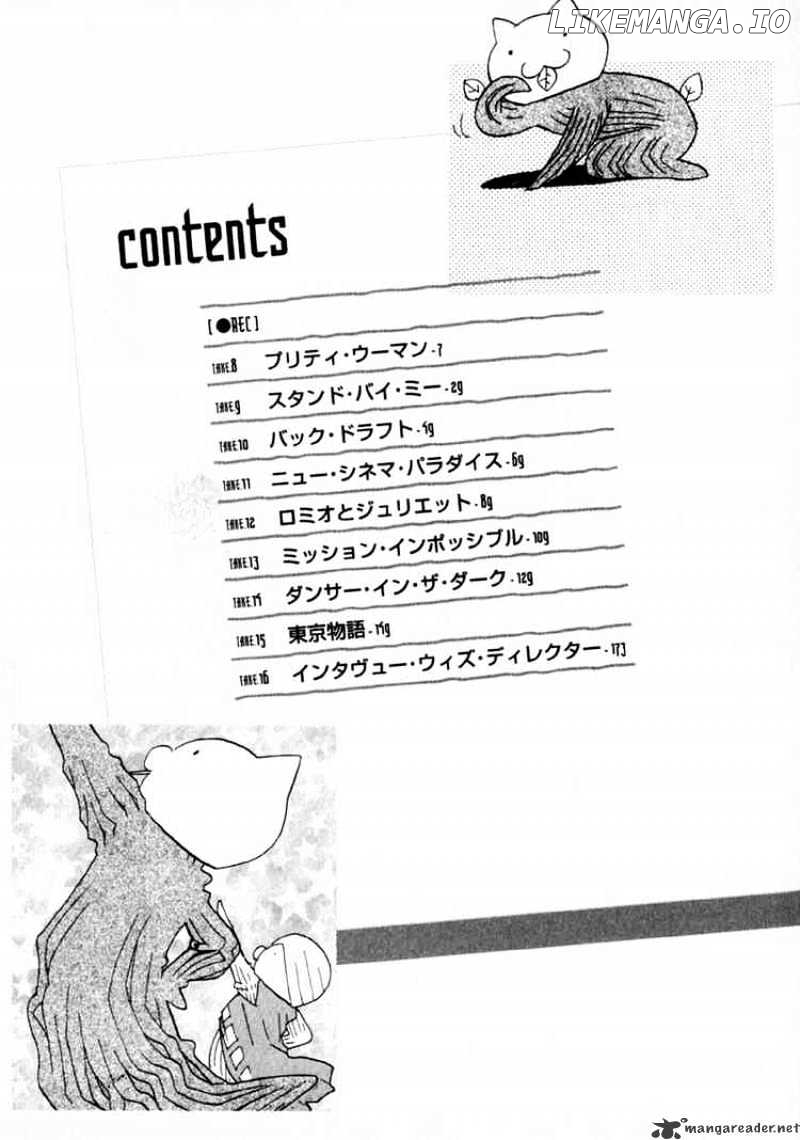 LIKEMANGA.IO
contents
[●REC]
TAKE.8 プリティ・ウーマン-7
TAKE.9 スタンド・バイ・ミー-29
TAKE.10 バック・ドラフト-49
TAKE.11 ニュー・シネマ・パラダイス-69
TAKE.12 ロミオとジュリエット-89
TAKE.13 ミッション・インポッシブル-109
TAKE.14 ダンサー・イン・ザ・ダーク-129
TAKE.15 東京物語-149
TAKE.16 インタヴュー・ウィズ・ディレクター-173
mangareader.net